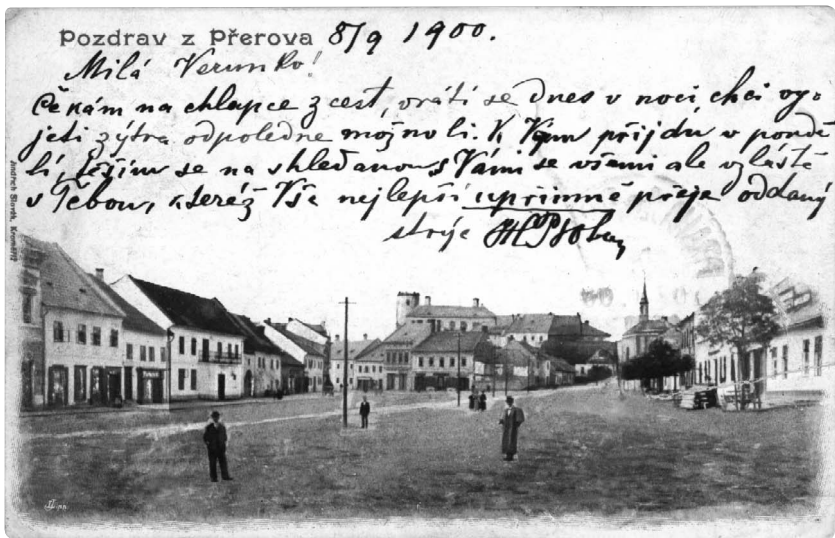 Pozdrav z Přerova 8/9 1900.
Milá Verunko!
Čekám na chlapce z cest, vrátí se dnes v noci, chci vy-
jeti zýtra odpoledne možno li. K Vám přijdu v pondě-
lí, těším se na shledanou s Vámi se všemi ale vzláště
s Tebou, Vše nejlepší upřímně přeje oddaný
strýc